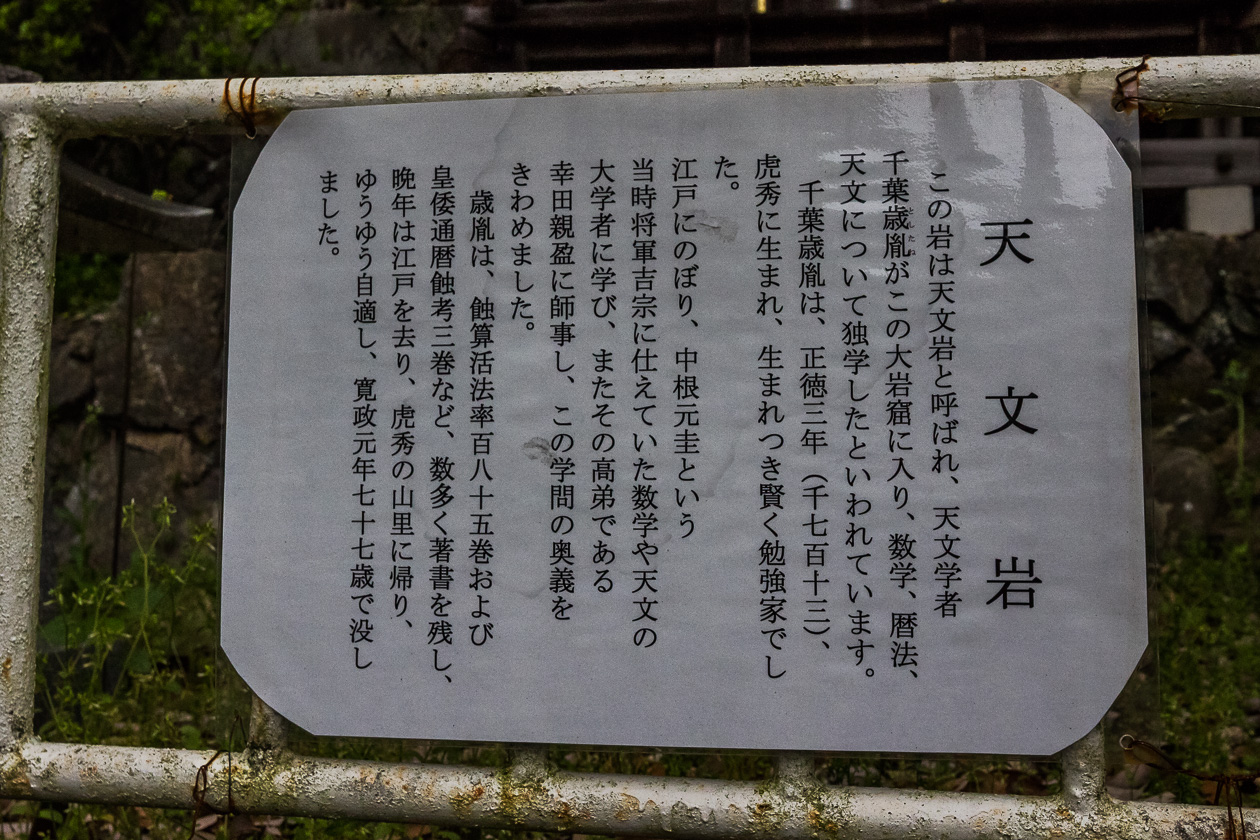 天文岩
この岩は天文岩と呼ばれ、天文学者
千葉歳胤がこの大岩窟に入り、数学、暦法、
天文について独学したといわれています。
千葉歳胤は、正徳三年（千七百十三）、
虎秀に生まれ、生まれつき賢く勉強家でし
た。
江戸にのぼり、中根元圭という
当時将軍吉宗に仕えていた数学や天文の
大学者に学び、またその高弟である
幸田親盈に師事し、この学問の奥義を
きわめました。
歳胤は、蝕算活法率百八十五巻および
皇倭通暦蝕考三巻など、数多く著書を残し、
晩年は江戸を去り、虎秀の山里に帰り、
ゆうゆう自適し、寛政元年七十七歳で没し
ました。